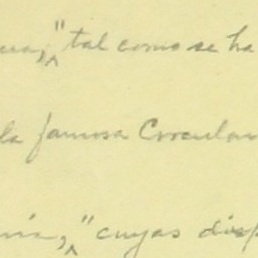 " tal como se ha
la famosa Circular
" cuyas